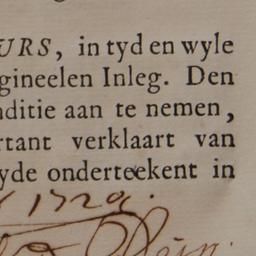 URS, in tyd en wyle
gineelen Inleg. Den
nditie aan te nemen,
rtant verklaart van
yde onderteekent in
1720.